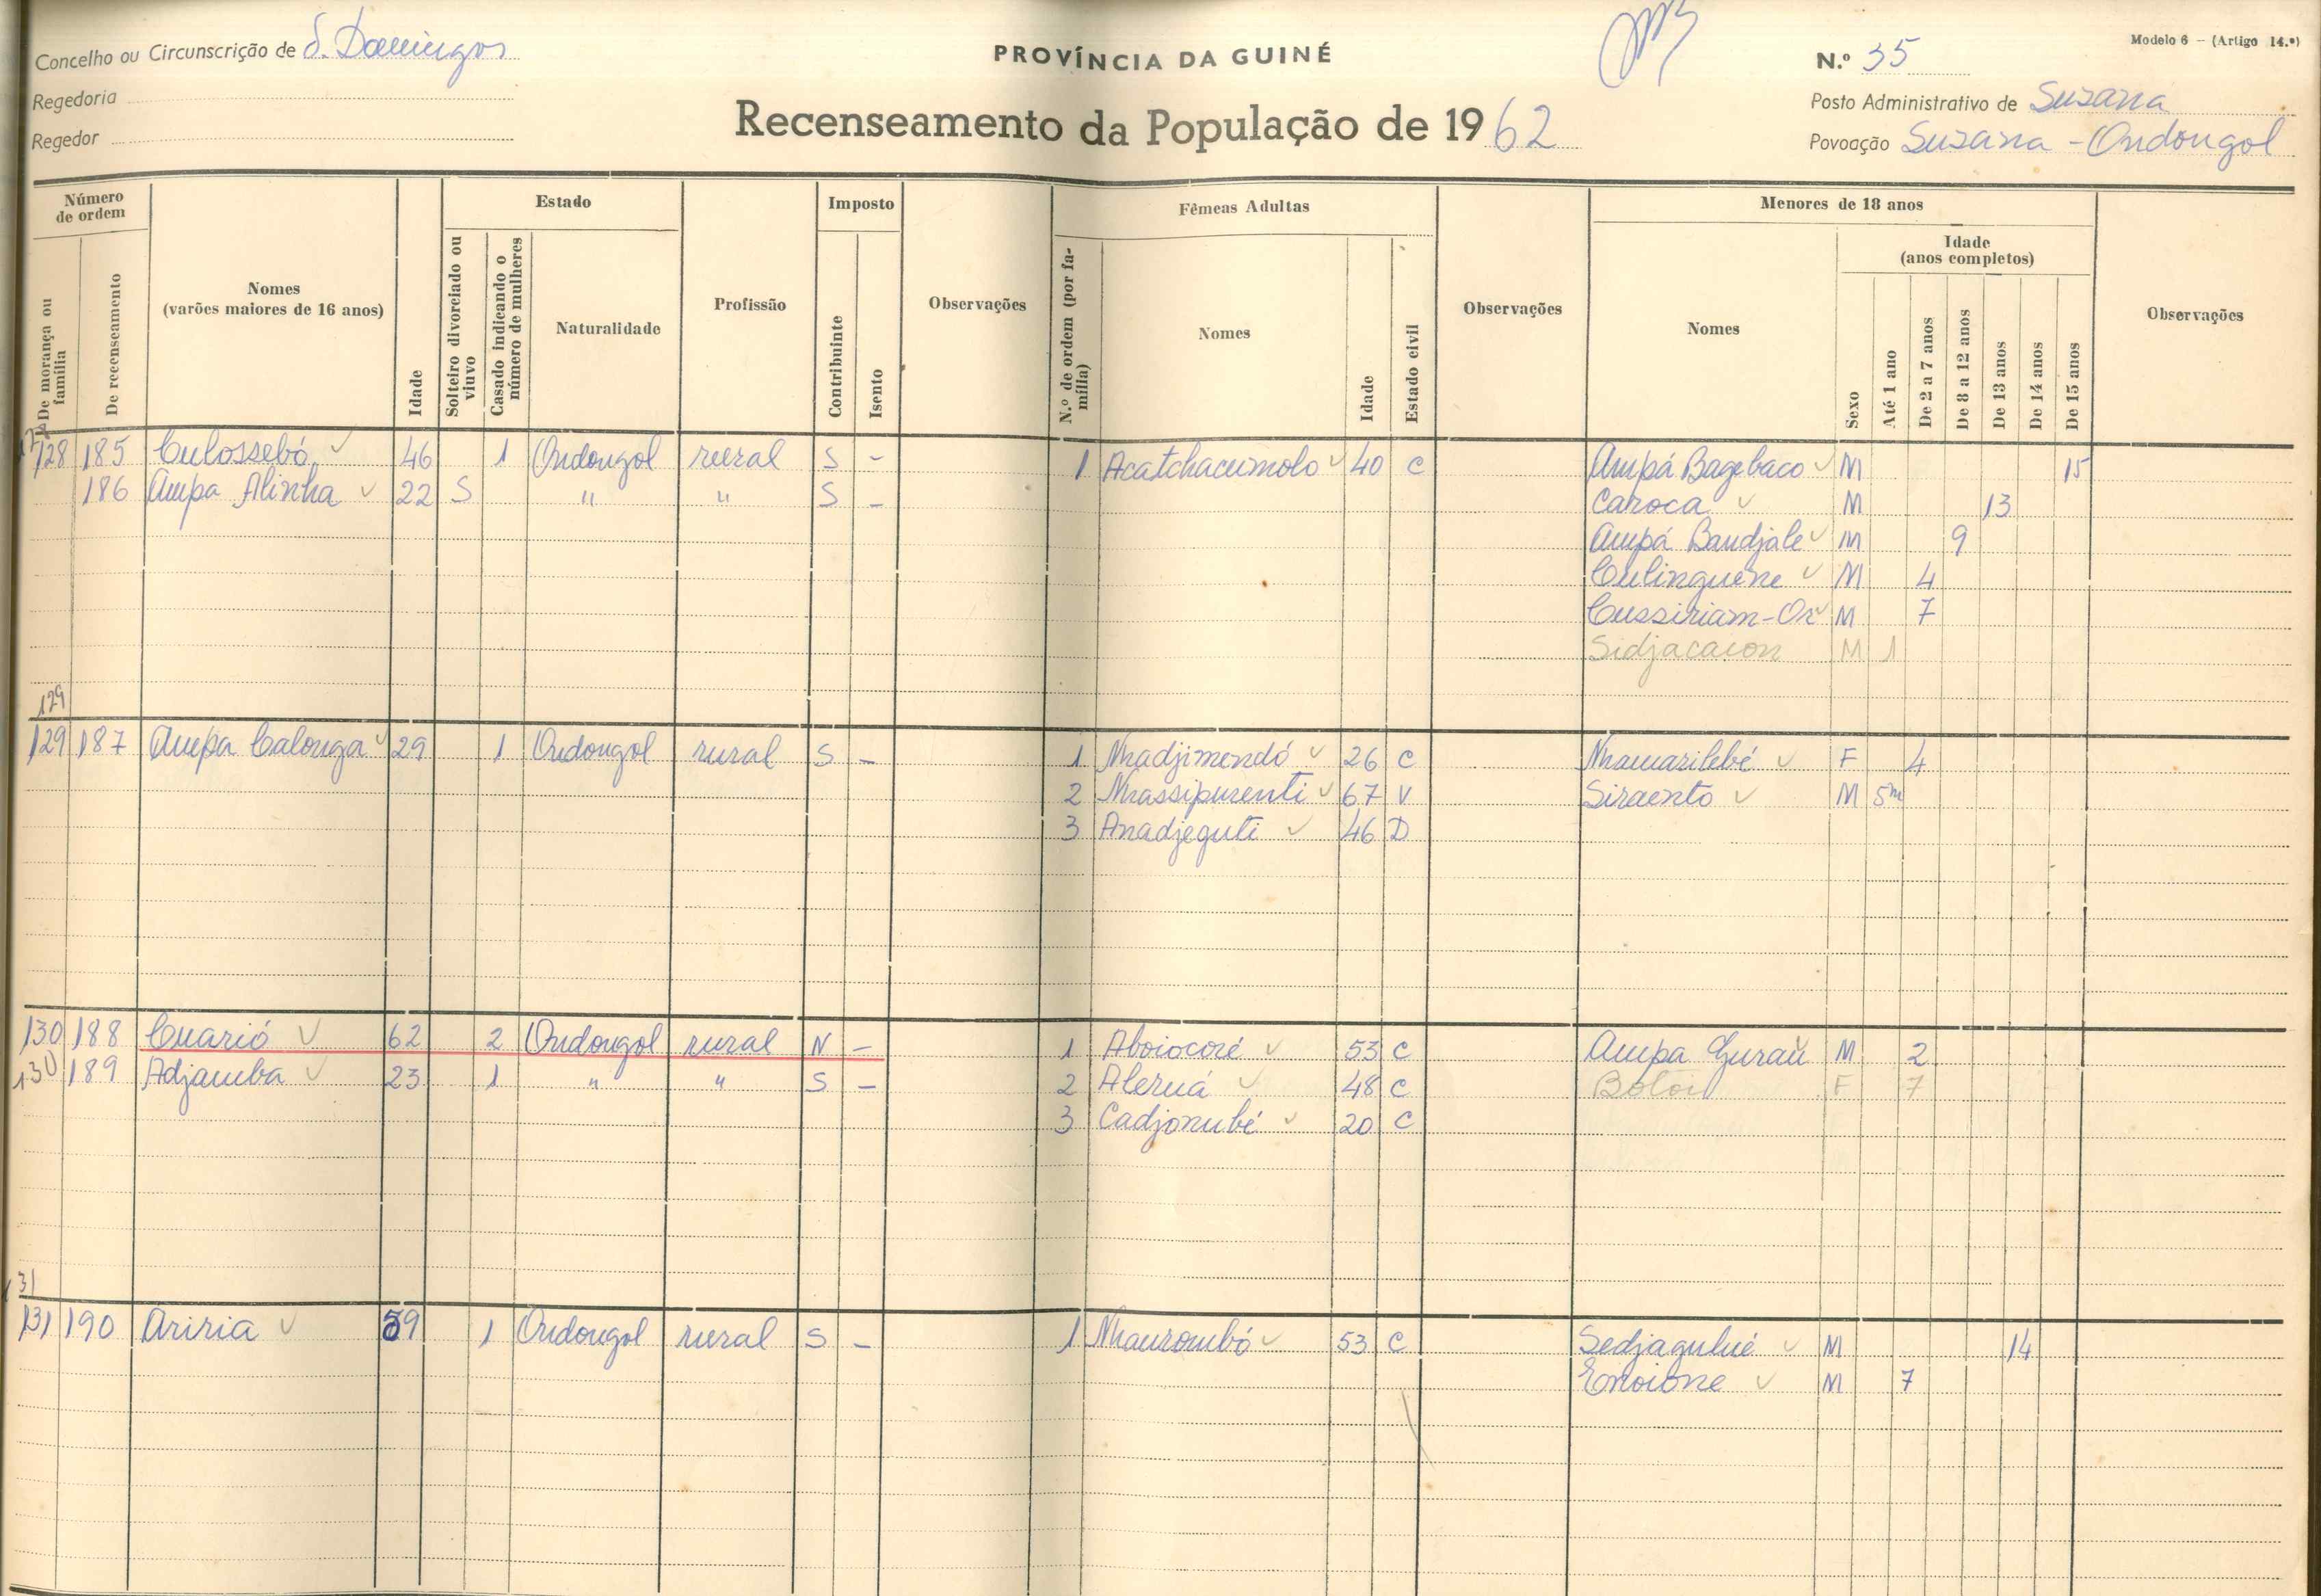 Modelo 6 – (Artigo 14.º)
Concelho ou Circunscrição de S. Domingos
PROVÍNCIA DA GUINÉ
N.º 35
Regedoria
Posto Administrativo de Suzana
Regedor
Recenseamento da População de 1962
Povoação Suzana - Ondongol
Número de ordem
Estado
Imposto
Fêmeas Adultas
Menores de 18 anos
Idade (anos completos)
De morança ou família
De recenseamento
Nomes (varões maiores de 16 anos)
Idade
Solteiro divorciado ou viuvo
Casado indicando o número de mulheres
Naturalidade
Profissão
Contribuinte
Isento
Observações
N.º de ordem (por família)
Nomes
Idade
Estado civil
Observações
Nomes
Sexo
Até 1 ano
De 2 a 7 anos
De 8 a 12 anos
De 13 anos
De 14 anos
De 15 anos
Observações
128 185 Culossebó 46 1 Ondongol rural S - 1 Acatchacumolo 40 C Ampá Bagebaco M 15
186 Ampa Alinha 22 S " " S - Caroca M 13
Ampá Bandjale M 9
Culinguene M 4
Cussiriam-On M 7
Sidjacaion M 1
129
129 187 Ampa Calonga 29 1 Ondongol rural S - 1 Nhadjimendó 26 C Nhamarilebé F 4
2 Nhassipurenti 67 V Siraento M 5m
3 Anadjeguti 46 D
130 188 Cuarió 62 2 Ondongol rural N - 1 Aboiocoré 53 C Ampa Guraŭ M 2
130 189 Adjamba 23 1 " " S - 2 Aleruá 48 C Boloi F 7
3 Cadjonubé 20 C
131
131 190 Ariria 59 1 Ondongol rural S - 1 Nhaurombó 53 C Sedjagulué M 14
Enoione M 7